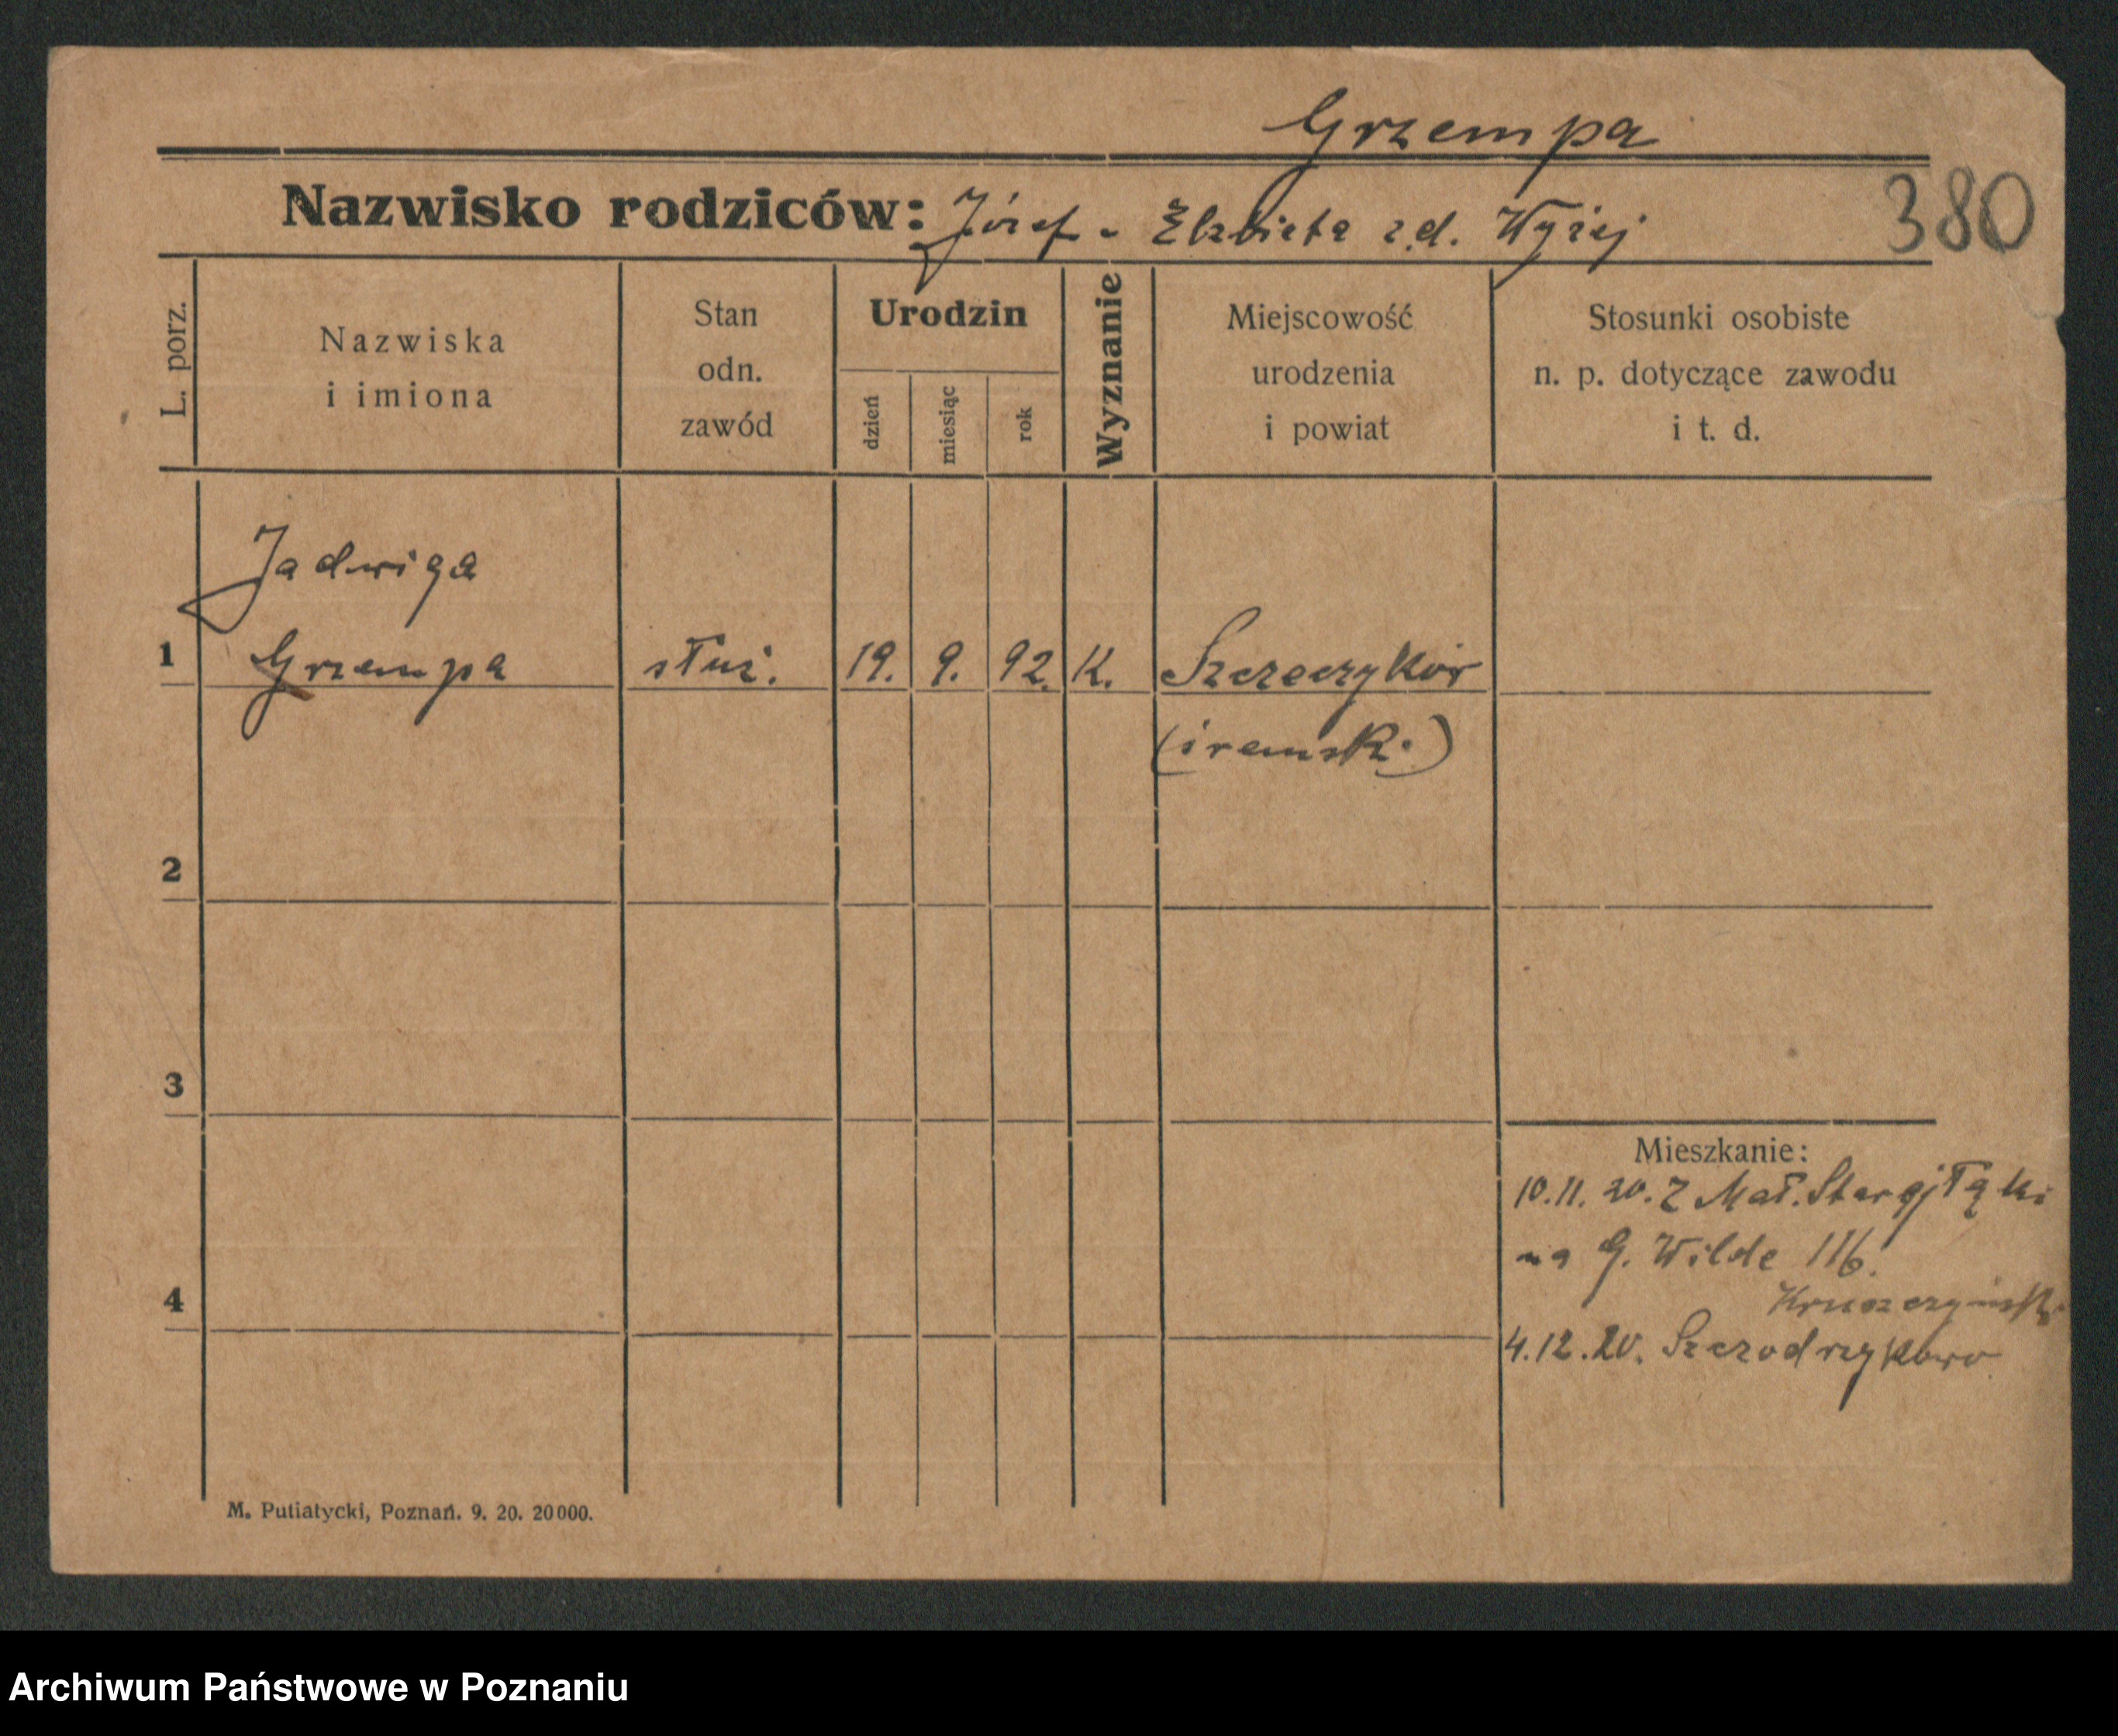 Grzempa
Nazwisko rodziców: Józef - Elzbieta z d. Wyżej
380
L. porz.
Nazwiska
i imiona
Stan
odn.
zawód
Urodzin
dzień
miesiąc
rok
Wyznanie
Miejscowość
urodzenia
i powiat
Stosunki osobiste
n. p. dotyczące zawodu
i t. d.
Jadwiga
1 Grzempa służ. 19. 9. 92. K.
2
3
4
Mieszkanie:
10.11.20. Z Mał.
na G. Wilde 116.
Kruszczyńsk.
4.12.20. Szczodrzykowo
M. Putiatycki, Poznań. 9. 20. 20000.
Archiwum Państwowe w Poznaniu